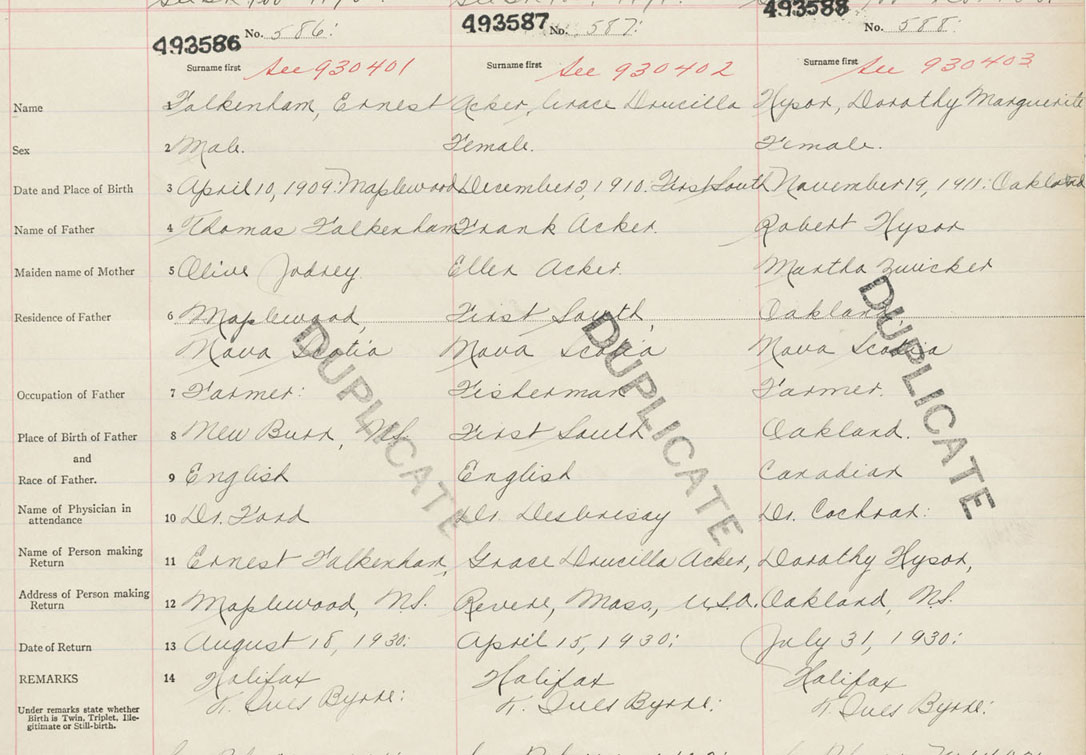 493586 No. 586: 493587 No. 587: 493588 No. 588:
Surname first See 930401 Surname first See 930402 Surname first See 930403
Name Falkenham, Ernest Acker, Grace Drucilla Hyson, Dorothy Marguerite
Sex 2 Male. Female. Female.
Date and Place of Birth 3 April 10, 1909: Maplewood December 2, 1910: First South November 19, 1911: Oakland
Name of Father 4 Thomas Falkenham Frank Acker. Robert Hyson
Maiden name of Mother 5 Olive Jodrey Ellen Acker. Martha Zwicker
Residence of Father 6 Maplewood, First South, Oakland,
Nova Scotia Nova Scotia Nova Scotia
DUPLICATE DUPLICATE DUPLICATE
Occupation of Father 7 Farmer: Fisherman Farmer.
Place of Birth of Father 8 New Burn, First South Oakland.
and
Race of Father. 9 English English Canadian
Name of Physician in
attendance 10 Dr. Ford Dr. Desbrisay Dr. Cochran:
Name of Person making
Return 11 Ernest Falkenham, Grace Drucilla Acker, Dorothy Hyson,
Address of Person making
Return 12 Maplewood, N.S. Revere, Mass, U.S.A. Oakland, N.S.
Date of Return 13 August 18, 1930: April 15, 1930: July 31, 1930:
REMARKS 14 Halifax Halifax Halifax
Under remarks state whether
Birth is Twin, Triplet, Ille-
gitimate or Still-birth.
T. Ives Byrne: T. Ives Byrne: T. Ives Byrne: